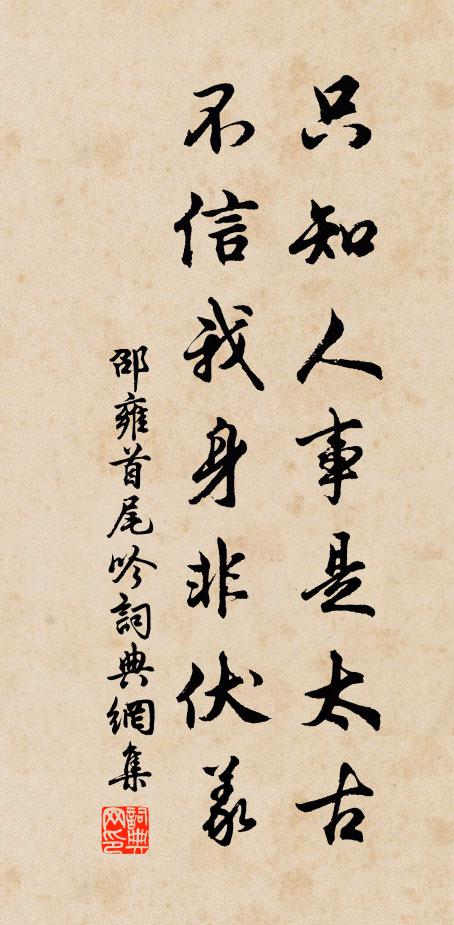 只知人事是太古
不信我身非伏羲
邵雍首尾吟詞典網集
詞典网印